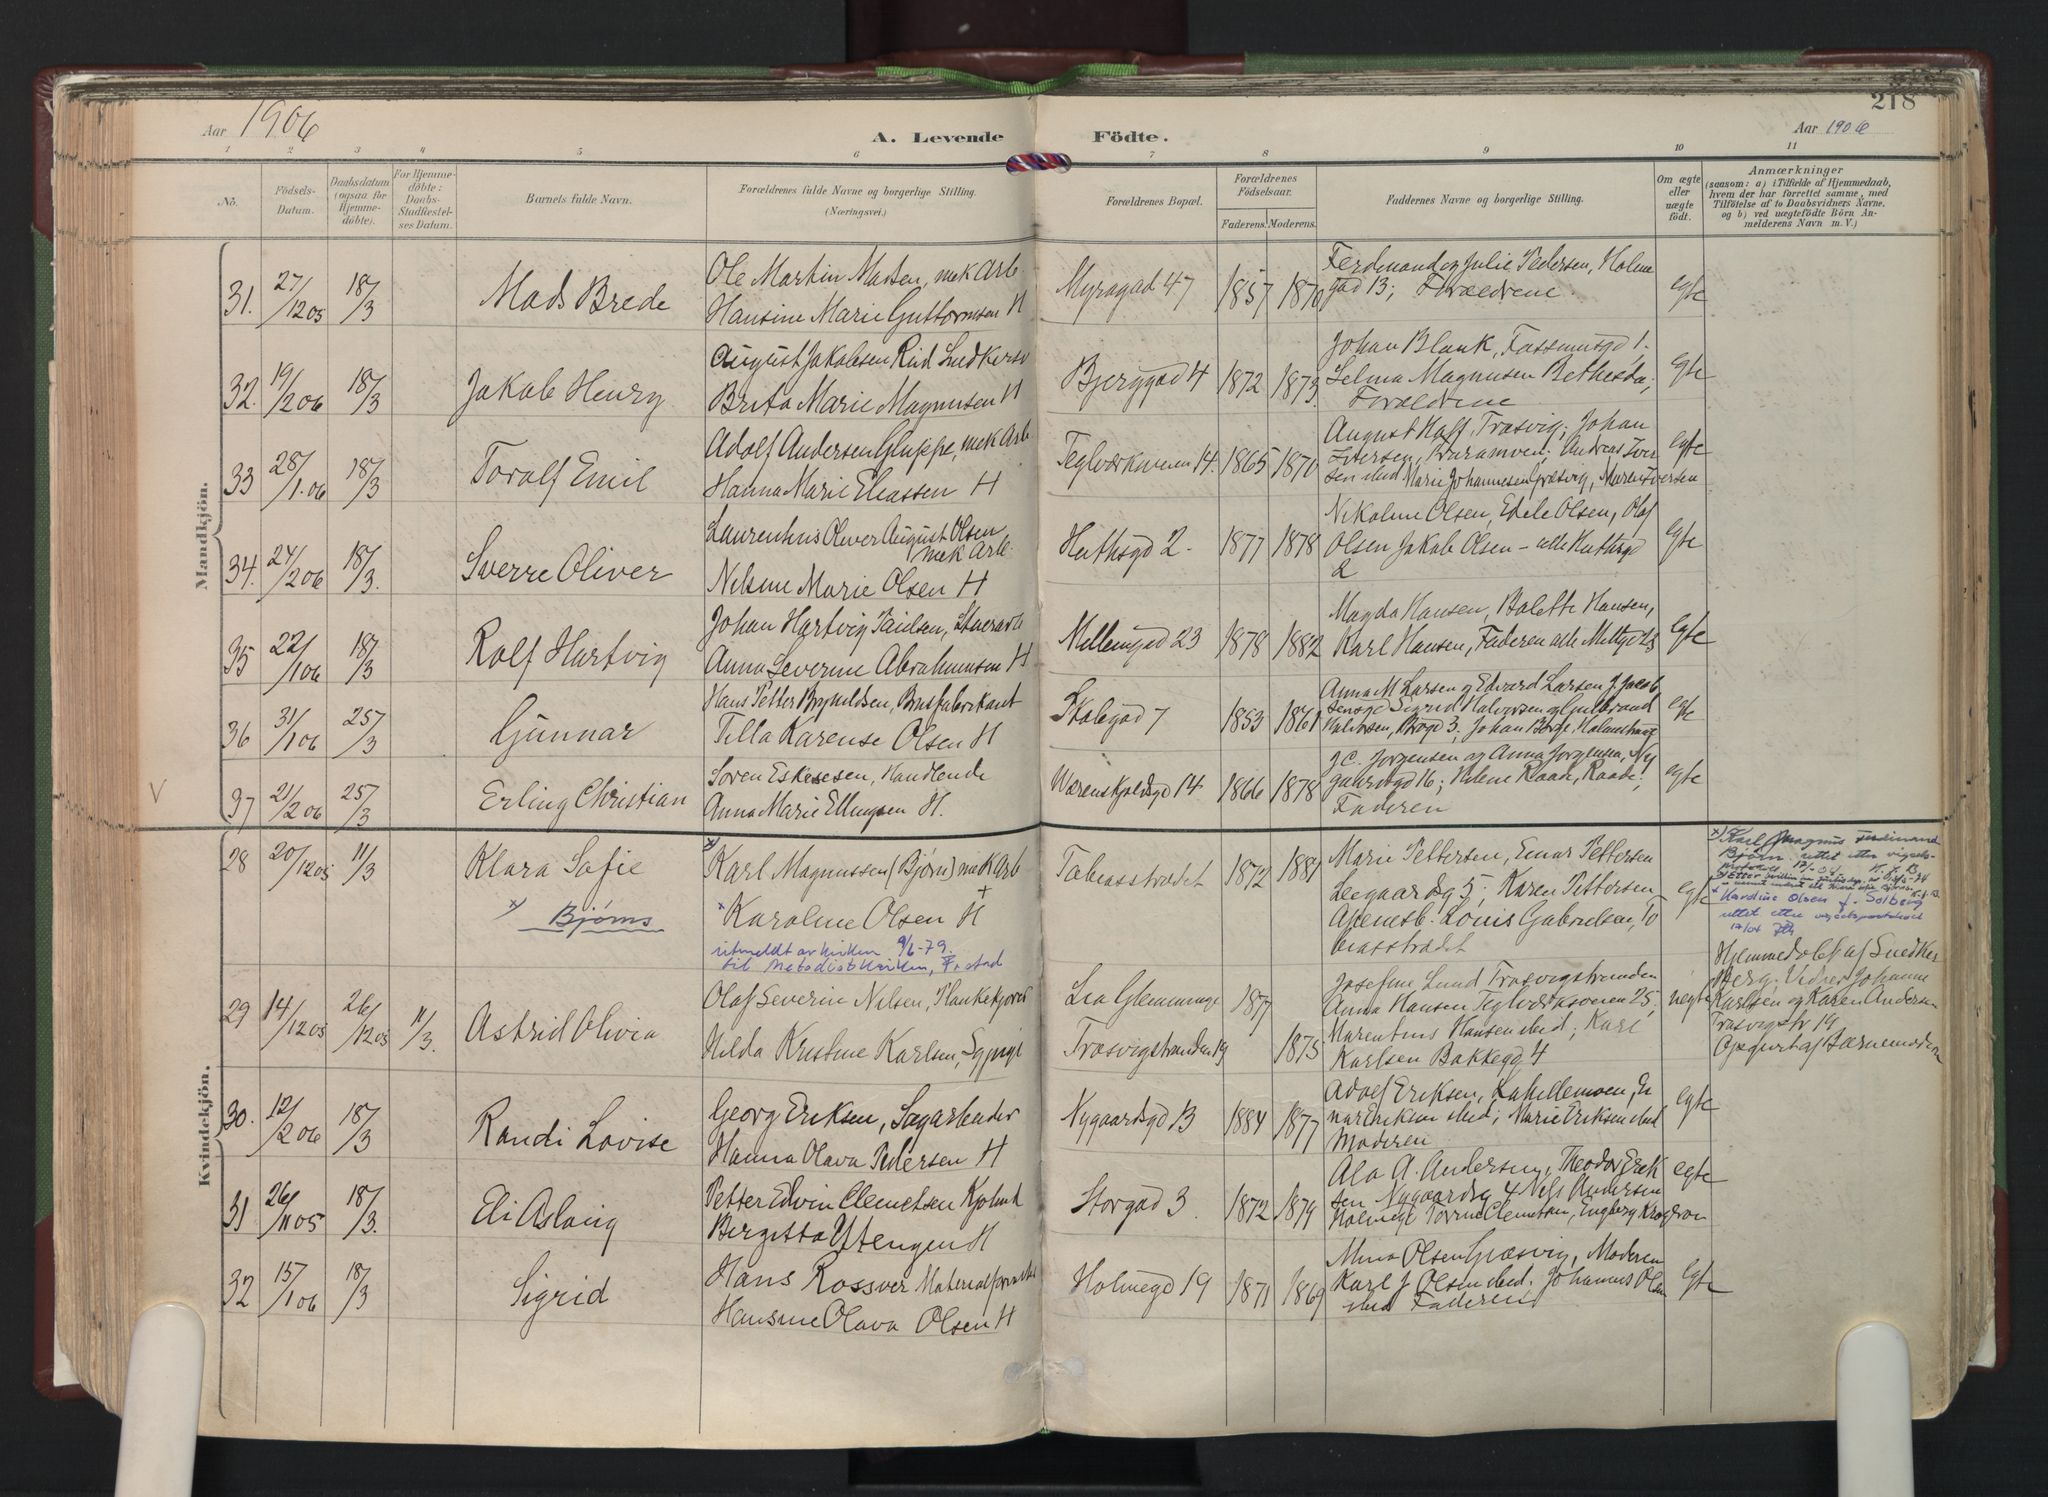 218
Aar 1906
A. Levende
Födte.
Aar 1906
1 2 3 4 5 6 7 8 9 10 11
No.
Födsels-
Datum.
Daabsdatum
(ogsaa för
Hjemme-
döbte).
For Hjemme-
döbte:
Daabs-
Stadfæstel-
ses Datum.
Barnets fulde Navn.
Forældrenes fulde Navne og borgerlige Stilling.
(Næringsvei.)
Forældrenes Bopæl.
Forældrenes
Födselsaar.
Faderens. Moderens.
Faddernes Navne og borgerlige Stilling.
Om ægte
eller
uægte
födt.
Anmærkninger
(saasom: a) i Tilfælde af Hjemmedaab,
hvem der har forrettet samme, med
Tilföielse af to Daabsvidners Navne,
og b) ved uægtefödte Börn An-
melderens Navn m. V.)
Mandkjön.
31. 27/12 05 18/3 Mads Brede
Ole Martin Madsen, mek Arb
Hansine Marie Guttormsen H
Myragad 47 1857 1870
Ferdinand og Julie Pedersen, Holme
gad 13; Forældrene.
egte
32. 19/2 06 18/3 Jakob Henry
August Jakobsen Rud Snedkersv
Brita Marie Magnusen H
Bjerggad 4 1872 1873
Johan Blank,
Selma Magnusen Bethesda;
Forældrene
egte
33 28/1 06 18/3 Toralf Emil
Adolf Andersen Gluppe, mek Arb
Hanna Marie Eliassen H
Teglværksveien 14. 1865 1870
August Hoff, Trosvig; Johan
Andreas Iver
sen ibid Marie Johannesen Græsvig, Maren Iversen
egte
34. 24/2 06 18/3. Sverre Oliver
Laurentius Oliver August Olsen
mek Arb.
Nilsine Marie Olsen H
Huthsgd 2. 1877 1878
Nikoline Olsen, Edile Olsen, Olaf
Olsen Jakob Olsen – alle Huthsgd
2
egte
35 22/1 06 18/3 Rolf Hartvig
Johan Hartvig Paulsen,
Anna Severine Abrahamsen H
Mellemgad 23 1878 1882
Magda Hansen, Bolette Hansen,
Karl Hansen, Faderen alle Mellgd 23
egte
36 31/1 06 25/3 Gunnar
Hans Petter Brynildsen, Brusfabrikant
Tilla Karense Olsen H
Skolegad 7 1853 1861
Anna M Larsen og Edvard Larsen J. Jacob
sensgd Sigrid Halvorsen og Gulbrand
Halvorsen, 3; Johan Borge,
egte
V
37 21/2 06 25/3 Erling Christian
Soren Eskesen, Handlende
Anna Marie Ellingsen H.
Wærenskjoldsgd 14 1866 1878
J. C. Jorgensen og Anna Jorgensen, Ny
gaardsgd 16; Helene Raade, Raade;
Faderen
egte
Kvindekjön.
28 20/12 05 11/3 Klara Sofie
x) Bjørns
x) Karl Magnussen (Bjørn) mek Arb
x Karoline Olsen H
utmeldt av kirken 9/6-79.
til Metodistkirken, Fr.stad
Tobiasstrædet 1872 1881
Marie Pettersen, Einar Pettersen
Leegaardsg 5; Karen Pettersen
Apenesb. Louis Gabrielsen, To
biasstrædet
egte
x) Karl Magnus Ferdinand
Bjørn rettet etter vigsels-
x Karoline Olsen f. Solberg
rettet etter vigselsprotokoll
29 14/12 05 26/12 05 11/3. Astrid Olivia
Olaf Severin Nilsen, Plankekjører
Hilda Kristine Karlsen, Sypige
Lia Glemminge 1877
Trosvigstranden 19 1875
Josefine Lund Trosvigstranden
Anna Hansen Teglværksveien 25;
Hansen ibid; Karl
Karlsen Bakkegd 4
uegte
Hjemmedobt af Snedker
Berg; Vidner Johanne
Karlsen og Karen Andersen
Trosvigstr 19
Opgivet af Barnemoderen
30. 12/2 06 18/3 Randi Lovise
Georg Eriksen, Sagarbeider
Hanna Olava Pedersen H
Nygaardsgd 13 1884 1877
Adolf Eriksen, Ei
nar Eriksen ibid; Marie Eriksen ibid
Moderen
egte
31 26/11 05 18/3. Eli Aslaug
Petter Edvin Clemetsen Kjobm
Birgitta Ytengen H
Storgad 3 1872 1879
A. Andersen, Theodor Erik
sen Nygaardsg 4 Nils Andersen
Holmegt
egte
32 15/1 06 18/3 Sigrid
Hans Rossver Materialforvalter
Hansine Olava Olsen H
Holmegd 19 1871 1869
Mina Olsen Græsvig, Moderen
Karl J Olsen ibid. Johannes Olsen
ibid Faderen
egte